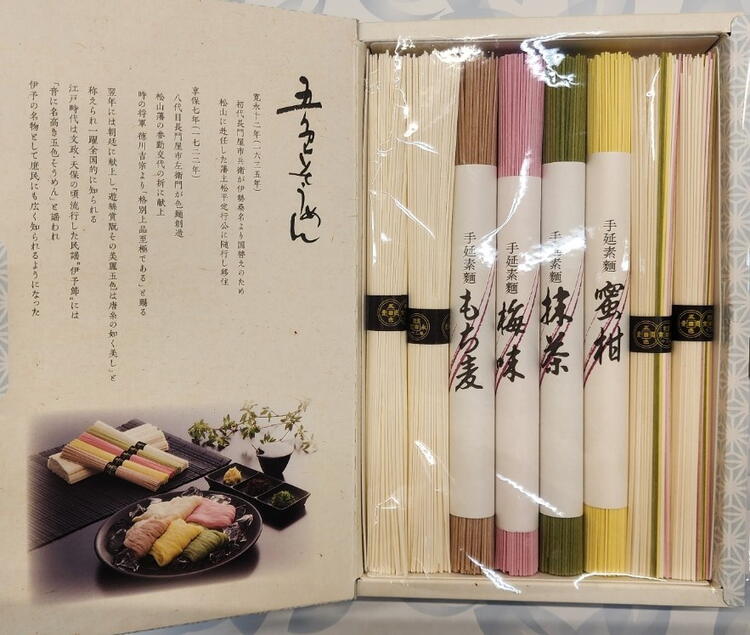 五色そうめん
寛永十二年(一六三五年)
初代長門屋市兵衛が伊勢桑名より国替えのため
松山に赴任した藩主松平定行公に随行し移住
享保七年(一七二二年)
八代目長門屋市左衛門が色麺創造
松山藩の参勤交代の折に献上
時の将軍 徳川吉宗より「格別上品至極である」と賜る
翌年には朝廷に献上し「遊糸其の美麗五色は唐糸の如く美し」と
称えられ一躍全国的に知られる
江戸時代は文政・天保の頃流行した民謡"伊予節"には
「音に名高き五色そうめん」と謡われ
伊予の名物として庶民にも広く知られるようになった
手延素麺
もち麦
手延素麺
梅味
手延素麺
抹茶
手延素麺
蜜柑